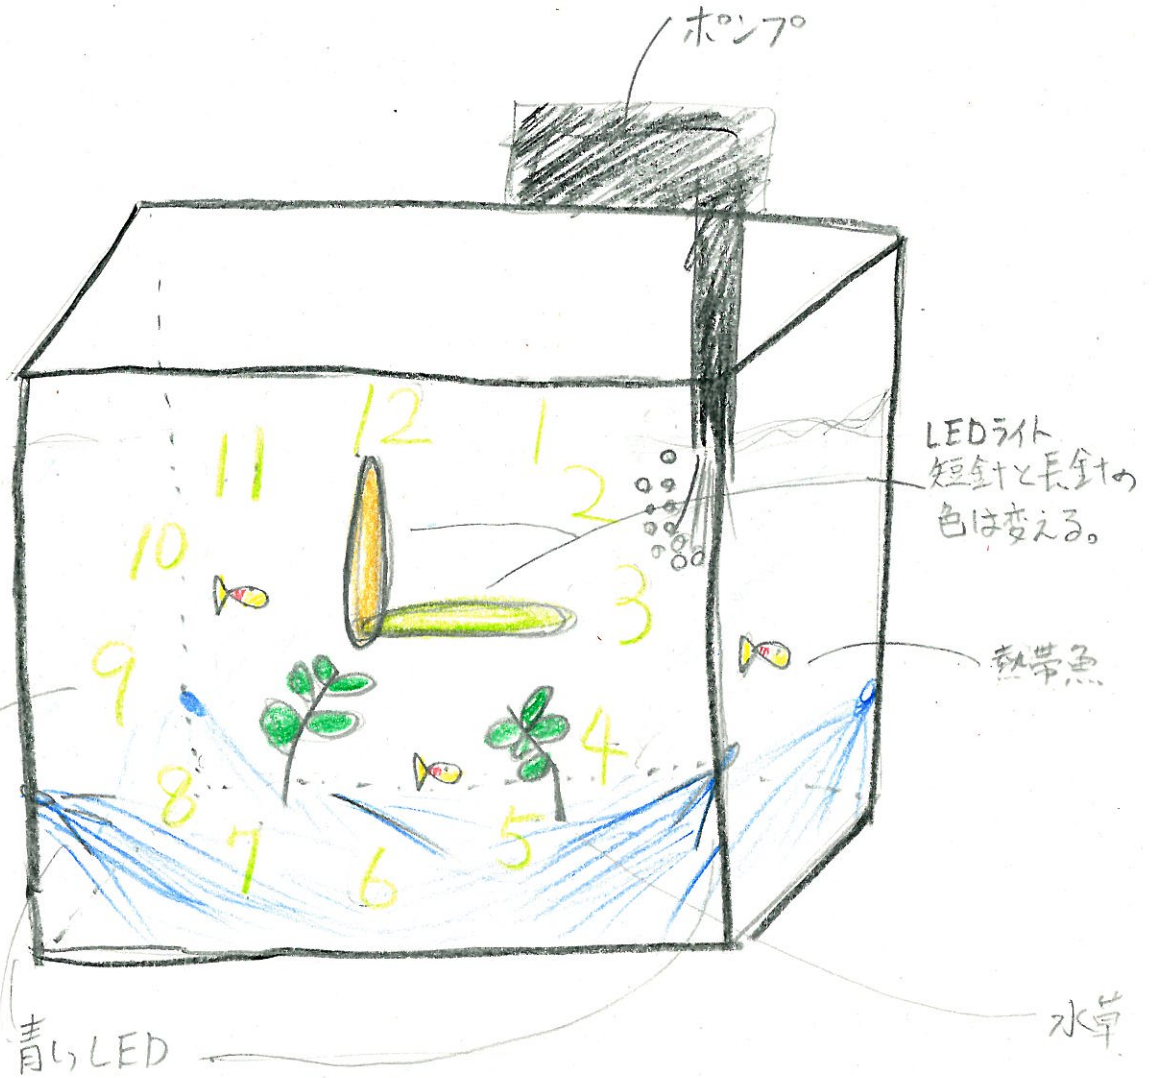 ポンプ
12
1
11
2
10
3
9
4
8
5
7
6
LEDライト
短針と長針の
色は変える。
熱帯魚
水草
青いLED